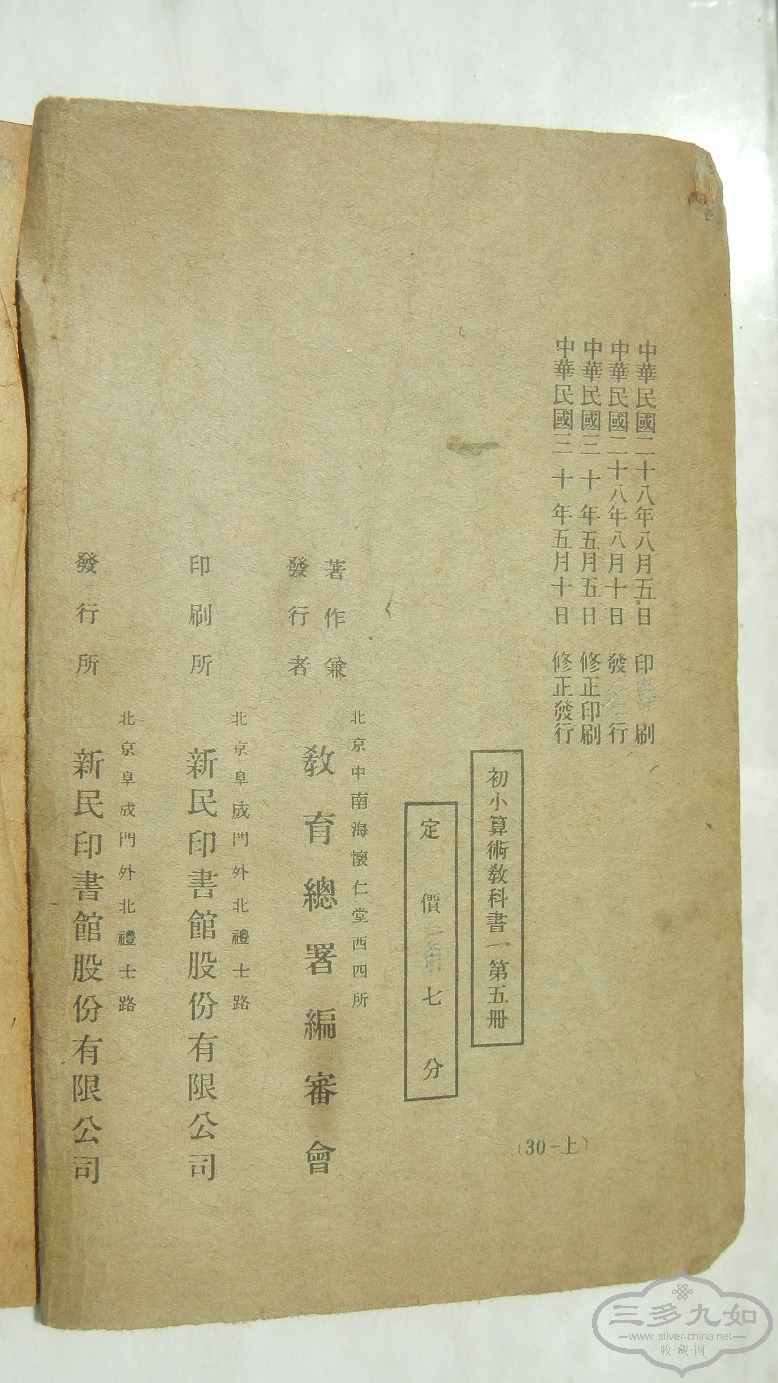 中華民國二十八年八月五日 印刷
中華民國二十八年八月十日 發行
中華民國三十年五月五日 修正印刷
中華民國三十年五月十日 修正發行
初小算術教科書一第五冊
定價 七分
(30-上)
著作兼
發行者
北京中南海懷仁堂西四所
教育總署編審會
印刷所
北京阜成門外北禮士路
新民印書館股份有限公司
發行所
北京阜成門外北禮士路
新民印書館股份有限公司
三多九如
www.silver-china.net
收·藏·网